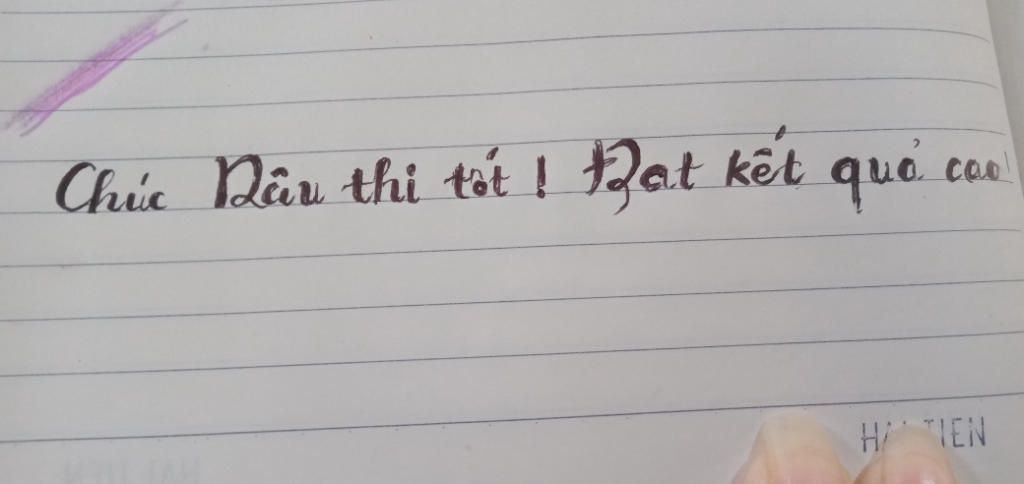 Chúc Dâu thi tốt ! Đạt kết quả cao
HẢI TIEN